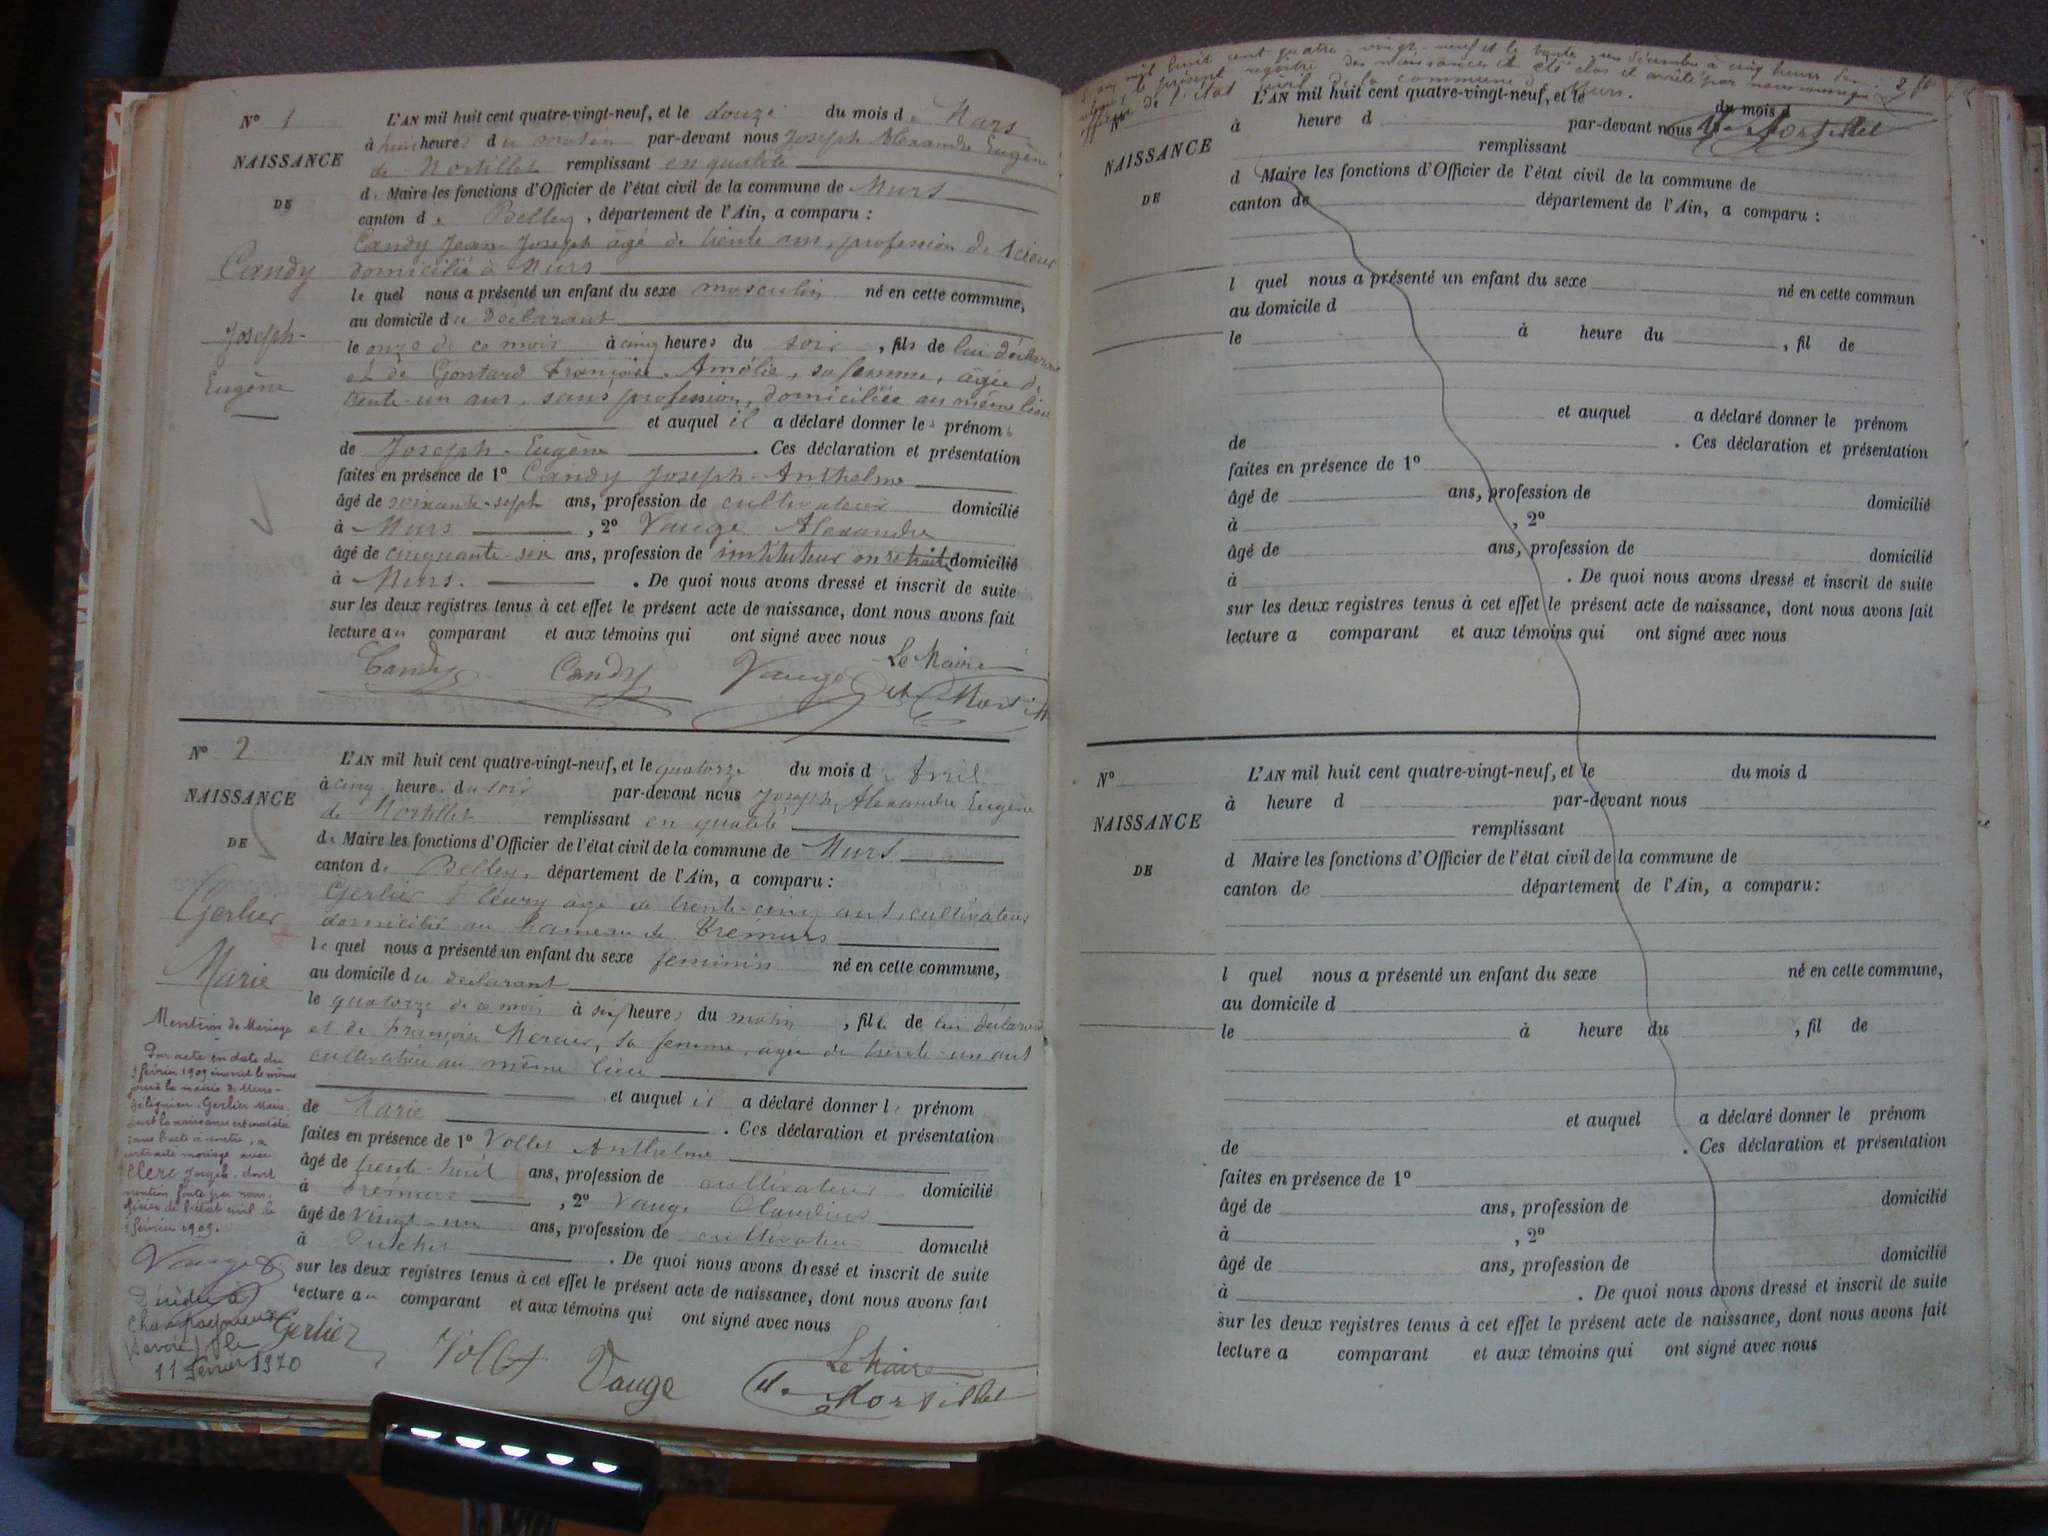 N° 1
NAISSANCE
DE
Candy
Joseph-
Eugène
L'AN mil huit cent quatre-vingt-neuf, et le douze du mois de Mars
à huit heures du matin par-devant nous Joseph Alexandre Eugène
de Mortillet remplissant en qualité
de Maire les fonctions d'Officier de l'état civil de la commune de Murs
canton de Belley, département de l'Ain, a comparu :
Candy Jean-Joseph âgé de trente ans, profession de scieur
domicilié à Murs
lequel nous a présenté un enfant du sexe masculin né en cette commune,
au domicile du Déclarant
le onze de ce mois à cinq heures du soir, fils de lui déclarant
et de Gontard Françoise-Amélie, sa femme, âgée de
trente-un ans, sans profession, domiciliée au même lieu
et auquel il a déclaré donner les prénoms
de Joseph-Eugène. Ces déclaration et présentation
faites en présence de 1° Candy Joseph-Anthelme
âgé de soixante-sept ans, profession de cultivateur domicilié
à Murs, 2° Vauge Alexandre
âgé de cinquante-six ans, profession de instituteur en retraite domicilié
à Murs. De quoi nous avons dressé et inscrit de suite
sur les deux registres tenus à cet effet le présent acte de naissance, dont nous avons fait
lecture au comparant et aux témoins qui ont signé avec nous
Le Maire
Candy Candy Vauge de Mortillet
N° 2
NAISSANCE
DE
Gerlier
Marie
L'AN mil huit cent quatre-vingt-neuf, et le quatorze du mois d'Avril
à cinq heures du soir par-devant nous Joseph Alexandre Eugène
de Mortillet remplissant en qualité
de Maire les fonctions d'Officier de l'état civil de la commune de Murs
canton de Belley, département de l'Ain, a comparu :
Gerlier Fleury âgé de trente-cinq ans, cultivateur
domicilié au hameau de Trémurs
lequel nous a présenté un enfant du sexe féminin né en cette commune,
au domicile du déclarant
le quatorze de ce mois à sept heures du matin, fille de lui déclarant
et de Françoise Mercier, sa femme, âgée de trente-un ans
cultivatrice au même lieu
et auquel il a déclaré donner le prénom
de Marie. Ces déclaration et présentation
faites en présence de 1° Vollet Anthelme
âgé de trente-huit ans, profession de cultivateur domicilié
à Trémurs, 2° Vauge Claudius
âgé de vingt-un ans, profession de cultivateur domicilié
à De quoi nous avons dressé et inscrit de suite
sur les deux registres tenus à cet effet le présent acte de naissance, dont nous avons fait
lecture au comparant et aux témoins qui ont signé avec nous
Gerlier Vollet Vauge
Le Maire
de Mortillet
Mention de Mariage
Par acte en date du
février 1909 inscrit le même
jour à la mairie de Murs-
Gélignieux, Gerlier Marie
dont la naissance est constatée
dans l'acte ci-contre, a
contracté mariage avec
Clerc Joseph, dont
mention faite par nous,
officier de l'état civil, le
février 1909.
Vauge
Décédée à
Champagneux
(Savoie) le
11 février 1970
L'an mil huit cent quatre-vingt-neuf et le trente un décembre à cinq heures du
le présent registre des naissances a été clos et arrêté par nous
de l'état civil de la commune de Murs.
de Mortillet
N°
NAISSANCE
DE
L'AN mil huit cent quatre-vingt-neuf, et le du mois d
à heure d par-devant nous
remplissant
d Maire les fonctions d'Officier de l'état civil de la commune de
canton de département de l'Ain, a comparu :
l quel nous a présenté un enfant du sexe né en cette commun
au domicile d
le à heure du , fil de
et auquel a déclaré donner le prénom
de . Ces déclaration et présentation
faites en présence de 1°
âgé de ans, profession de domicilié
à , 2°
âgé de ans, profession de domicilié
à . De quoi nous avons dressé et inscrit de suite
sur les deux registres tenus à cet effet le présent acte de naissance, dont nous avons fait
lecture a comparant et aux témoins qui ont signé avec nous
N°
NAISSANCE
DE
L'AN mil huit cent quatre-vingt-neuf, et le du mois d
à heure d par-devant nous
remplissant
d Maire les fonctions d'Officier de l'état civil de la commune de
canton de département de l'Ain, a comparu :
l quel nous a présenté un enfant du sexe né en cette commune,
au domicile d
le à heure du , fil de
et auquel a déclaré donner le prénom
de . Ces déclaration et présentation
faites en présence de 1°
âgé de ans, profession de domicilié
à , 2°
âgé de ans, profession de domicilié
à . De quoi nous avons dressé et inscrit de suite
sur les deux registres tenus à cet effet le présent acte de naissance, dont nous avons fait
lecture a comparant et aux témoins qui ont signé avec nous